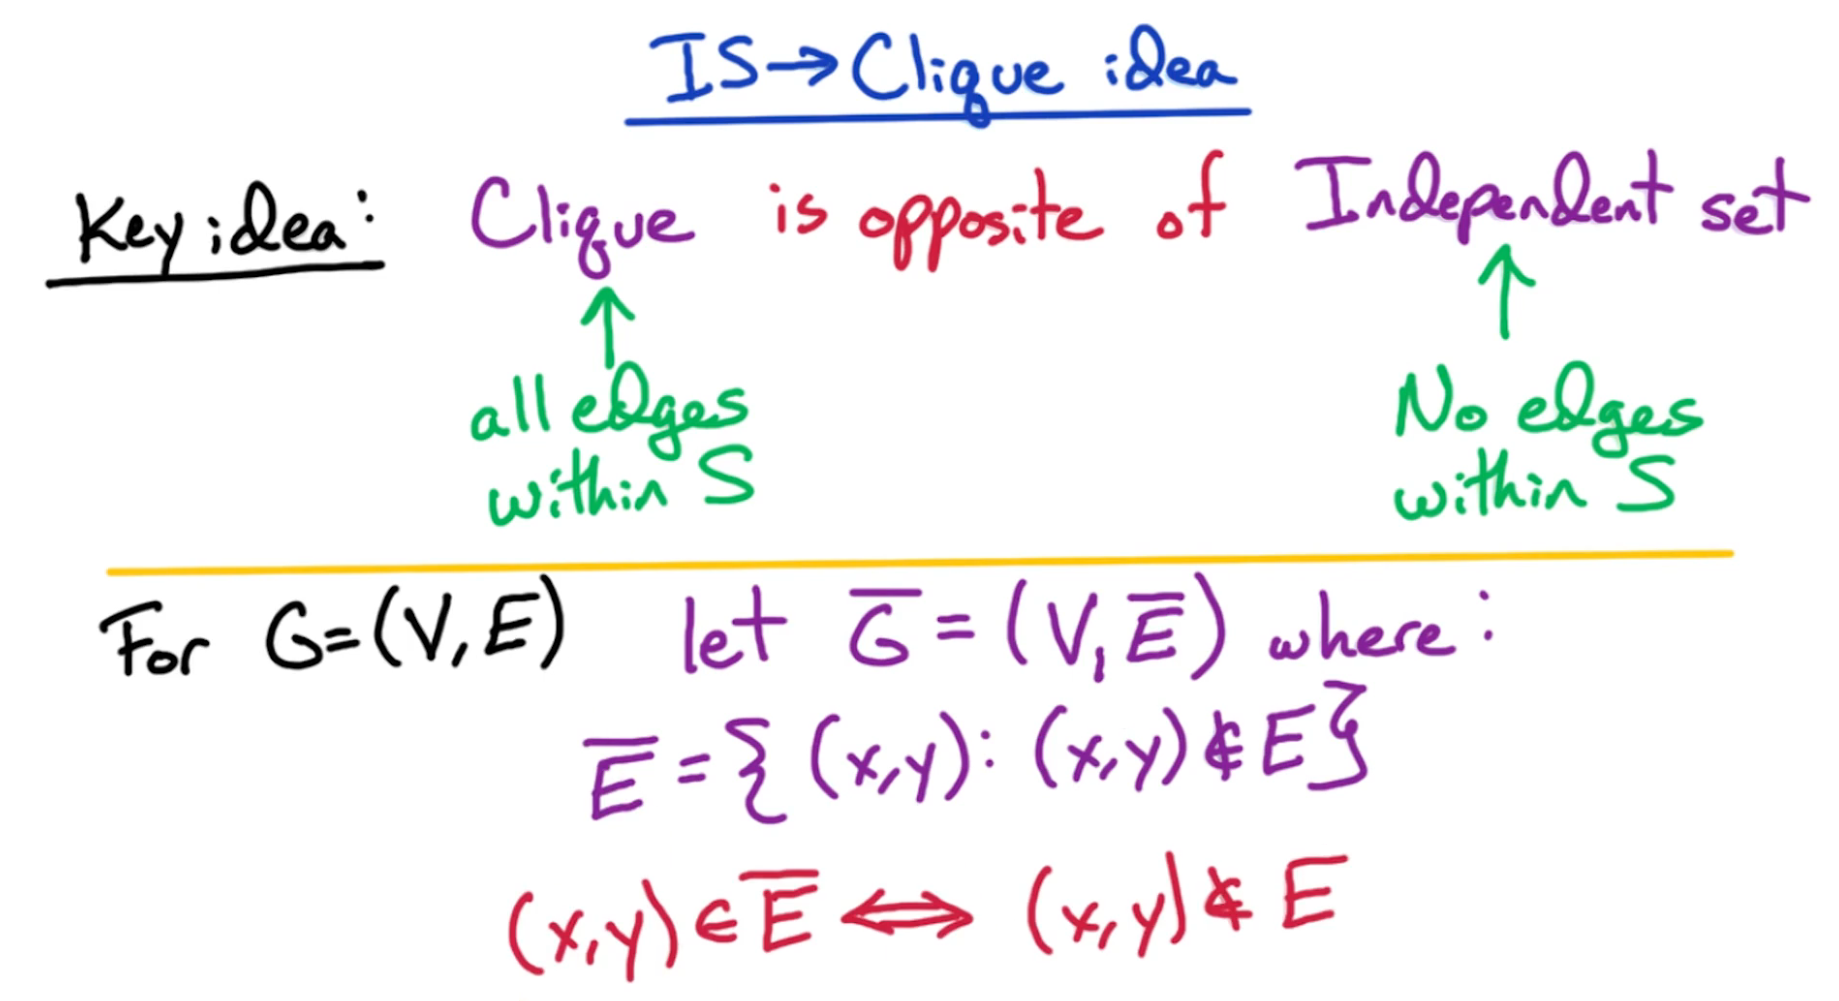 IS→Clique idea
Key idea: Clique is opposite of Independent set
all edges No edges
within S within S
For G=(V,E) let G̅ = (V,E̅) where:
E̅ = {(x,y): (x,y) ∉ E}
(x,y) ∈ E̅ ⟺ (x,y) ∉ E